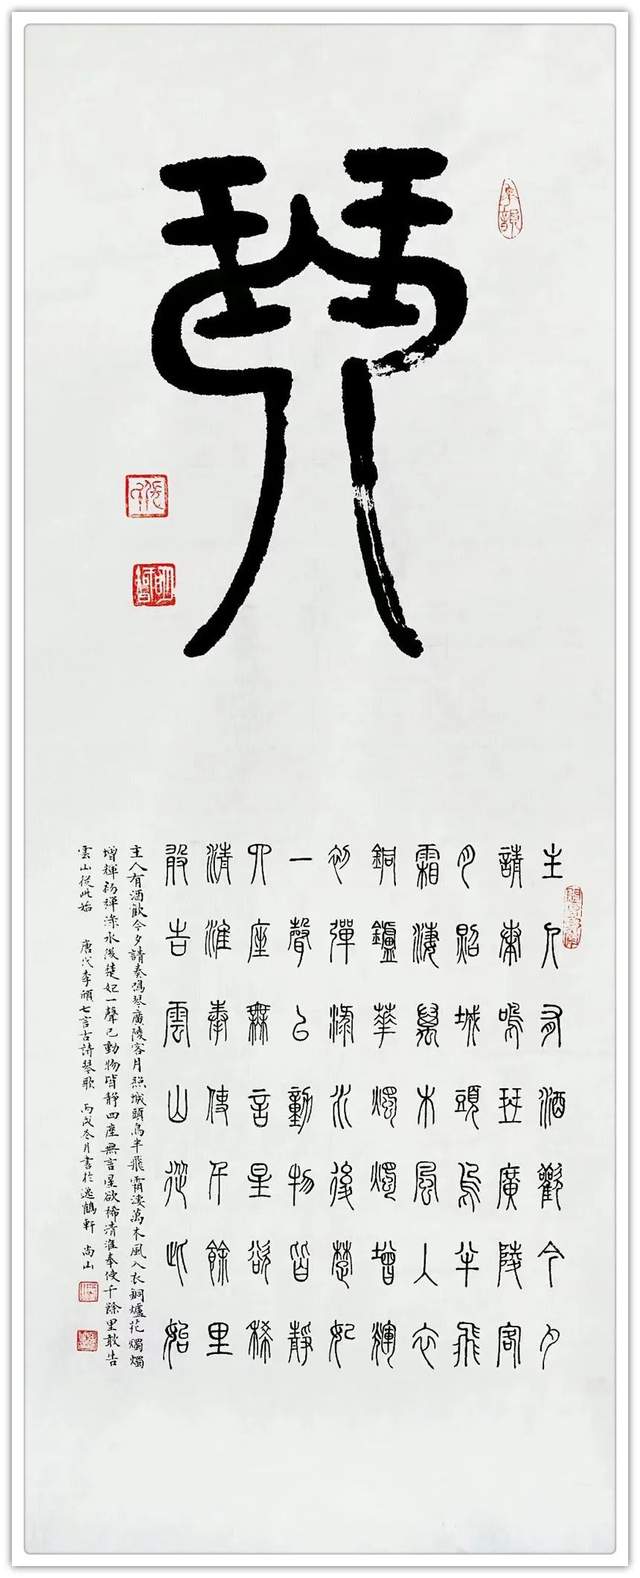 琴
主人有酒歡今夕
請奏鳴琴廣陵客
月照城頭烏半飛
霜淒萬木風入衣
銅鑪華燭燭增輝
初彈淥水後楚妃
一聲已動物皆靜
四座無言星欲稀
清淮奉使千餘里
敢告雲山從此始
主人有酒歡今夕請奏鳴琴廣陵客月照城頭烏半飛霜淒萬木風入衣銅爐花燭燭
增輝初彈淥水後楚妃一聲已動物皆靜四座無言星欲稀清淮奉使千餘里敢告
雲山從此始 唐代李頎七言古詩琴歌 丙戌冬月書於鶴軒 尚山